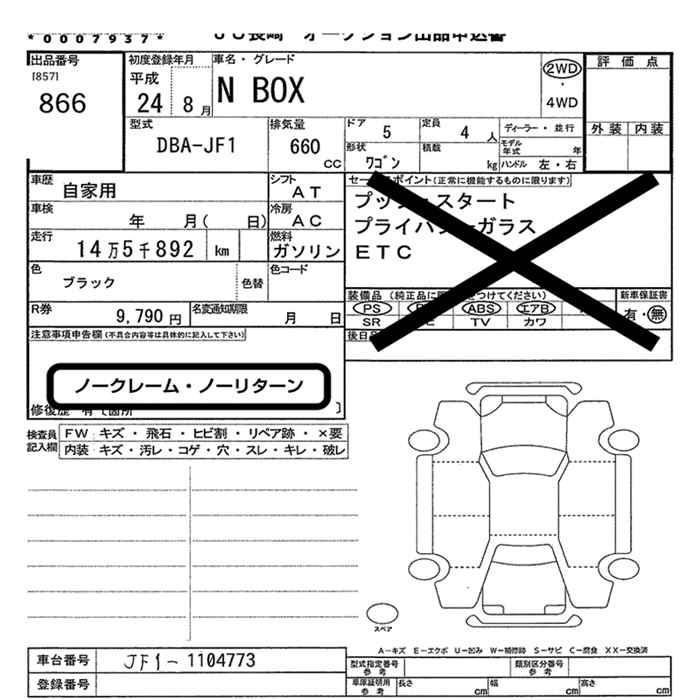 *0007937*
JU長崎 オークション出品申込書
出品番号
[857]
866
初度登録年月
平成
24 8月
車名・グレード
N BOX
2WD
・
4WD
評価点
外装 内装
型式
DBA-JF1
排気量
660
CC
ドア
5
定員
4 人
ディーラー・並行
形状
ワゴン
積載
kg
モデル年式
年
ハンドル 左・右
車歴
自家用
シフト
AT
車検
年 月( 日)
冷房
AC
走行
14万5千892 km
燃料
ガソリン
色
ブラック
色替
色コード
R券
9,790円
名変通知期限
月 日
セールスポイント(正常に機能するものに限ります)
プッシュスタート
プライバシーガラス
ETC
装備品
PS
ABS
エアB
SR
TV
カワ
新車保証書
有・無
注意事項申告欄(不具合内容等は具体的に記入して下さい)
ノークレーム・ノーリターン
検査員記入欄
FW キズ・飛石・ヒビ割・リペア跡・×要
内装 キズ・汚レ・コゲ・穴・スレ・キレ・破レ
スペア
A−キズ E−エクボ U−凹み W−補修跡 S−サビ C−腐食 XX−交換済
車台番号
JF1-1104773
登録番号
型式指定番号
参考
類別区分番号
参考
車庫証明用
参考
長さ
cm
幅
cm
高さ
cm